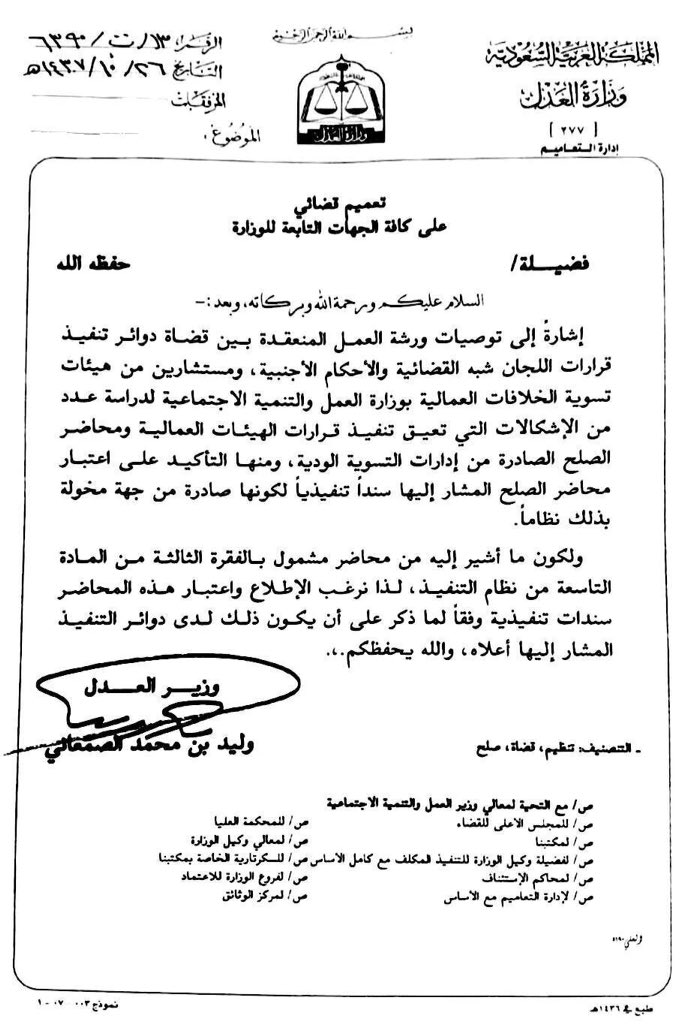 بسم الله الرحمن الرحيم
المملكة العربية السعودية
وزارة العدل
[ ٢٧٧ ]
إدارة التعاميم
وزارة العدل
الرقم: ١٣/ت/٦٣٩٠
التاريخ: ٢٦/١٠/١٤٣٧هـ
المرفقات
الموضوع:
تعميم قضائي
على كافة الجهات التابعة للوزارة
فضيلة/ حفظه الله
السلام عليكم ورحمة الله وبركاته، وبعد:-
إشارةً إلى توصيات ورشة العمل المنعقدة بين قضاة دوائر تنفيذ
قرارات اللجان شبه القضائية والأحكام الأجنبية، ومستشارين من هيئات
تسوية الخلافات العمالية بوزارة العمل والتنمية الاجتماعية لدراسة عدد
من الإشكالات التي تعيق تنفيذ قرارات الهيئات العمالية ومحاضر
الصلح الصادرة من إدارات التسوية الودية، ومنها التأكيد على اعتبار
محاضر الصلح المشار إليها سنداً تنفيذياً لكونها صادرة من جهة مخولة
بذلك نظاماً.
ولكون ما أشير إليه من محاضر مشمول بالفقرة الثالثة من المادة
التاسعة من نظام التنفيذ، لذا نرغب الإطلاع واعتبار هذه المحاضر
سندات تنفيذية وفقاً لما ذكر على أن يكون ذلك لدى دوائر التنفيذ
المشار إليها أعلاه، والله يحفظكم.،.
وزير العدل
وليد بن محمد الصمعاني
- التصنيف: تنظيم، قضاة، صلح
ص/ مع التحية لمعالي وزير العمل والتنمية الاجتماعية
ص/ للمجلس الاعلى للقضاء ص/ للمحكمة العليا
ص/ لمكتبنا ص/ لمعالي وكيل الوزارة
ص/ لفضيلة وكيل الوزارة للتنفيذ المكلف مع كامل الأساس ص/ للسكرتارية الخاصة بمكتبنا
ص/ لمحاكم الإستئناف ص/ لفروع الوزارة للاعتماد
ص/ لإدارة التعاميم مع الأساس ص/ لمركز الوثائق
طبع في ١٤٣٦هـ
نموذج ٠٠٣ - ٠٧ - ١